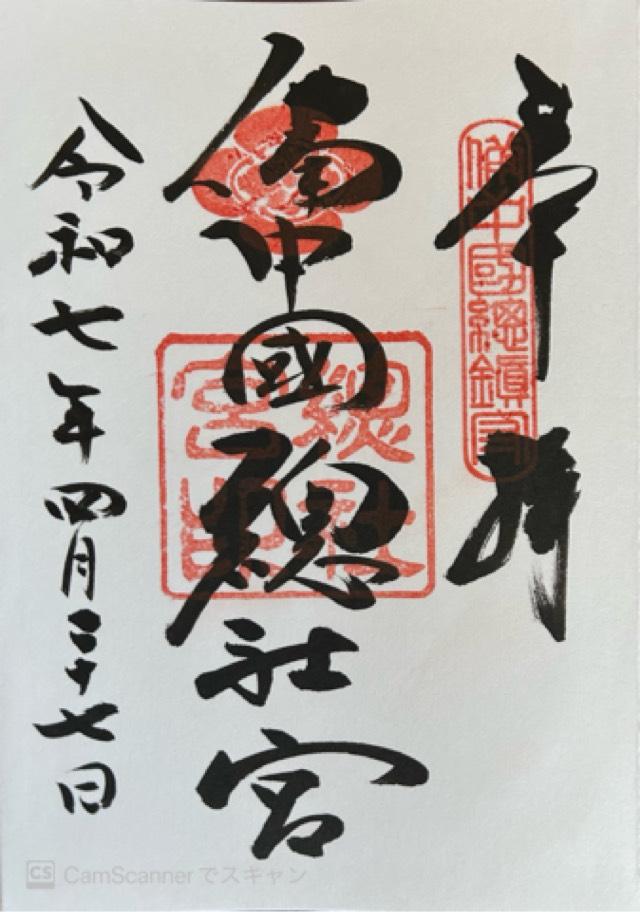 奉拝
備中國總鎮守
備中國總社宮
總社宮印
令和七年四月二十七日
CS CamScannerでスキャン